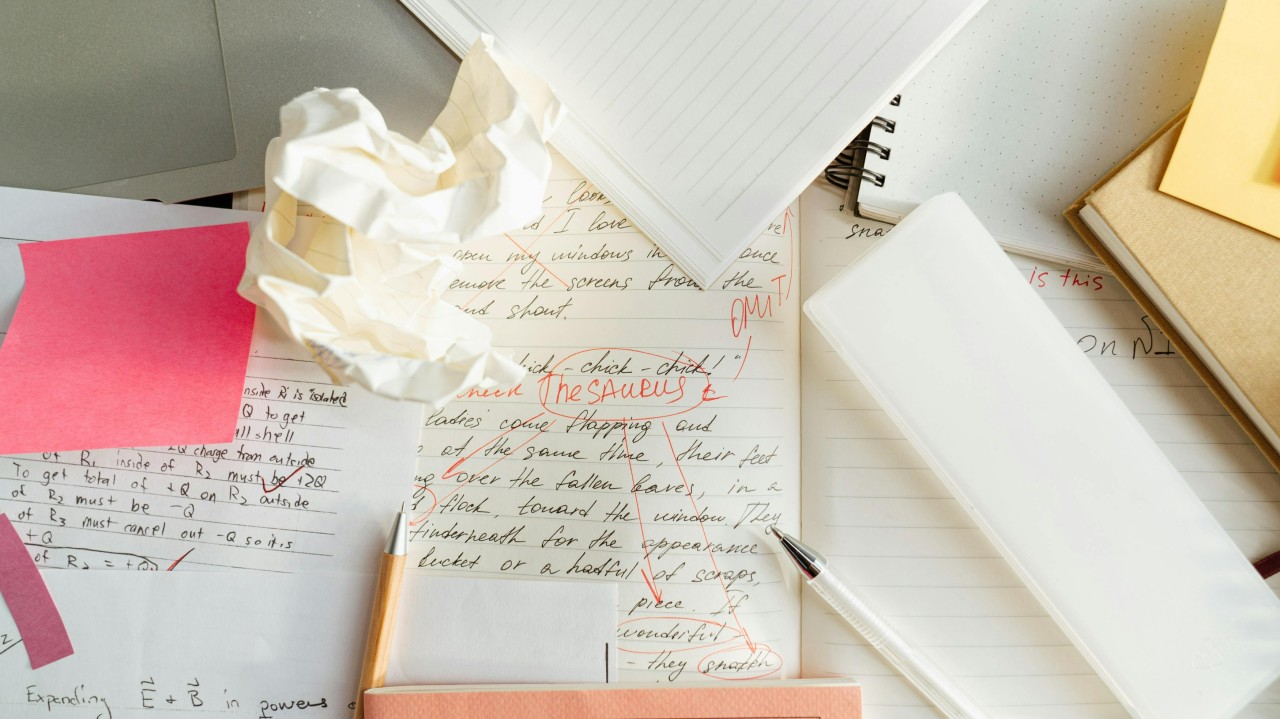 look
I love
open my windows in
once
emove the screens from the
and shout.
OMIT
ick - chick - chick! "
check Thesaurus
ladies come flapping and
at the same time, their feet
ng over the fallen leaves, in a
flock, toward the window. They
underneath for the appearance
bucket or a hatful of scraps,
piece. If
wonderful
- they snatch
nside Ri is isolated
Q to get
ll shell
+2Q charge from outside
of R1 inside of R2 must be +2Q
To get total of +Q on R2 outside
of R2 must be -Q
of R3 must cancel out -Q so it is
+Q
of R2 =
Expanding E + B in powers
sna
is this
on